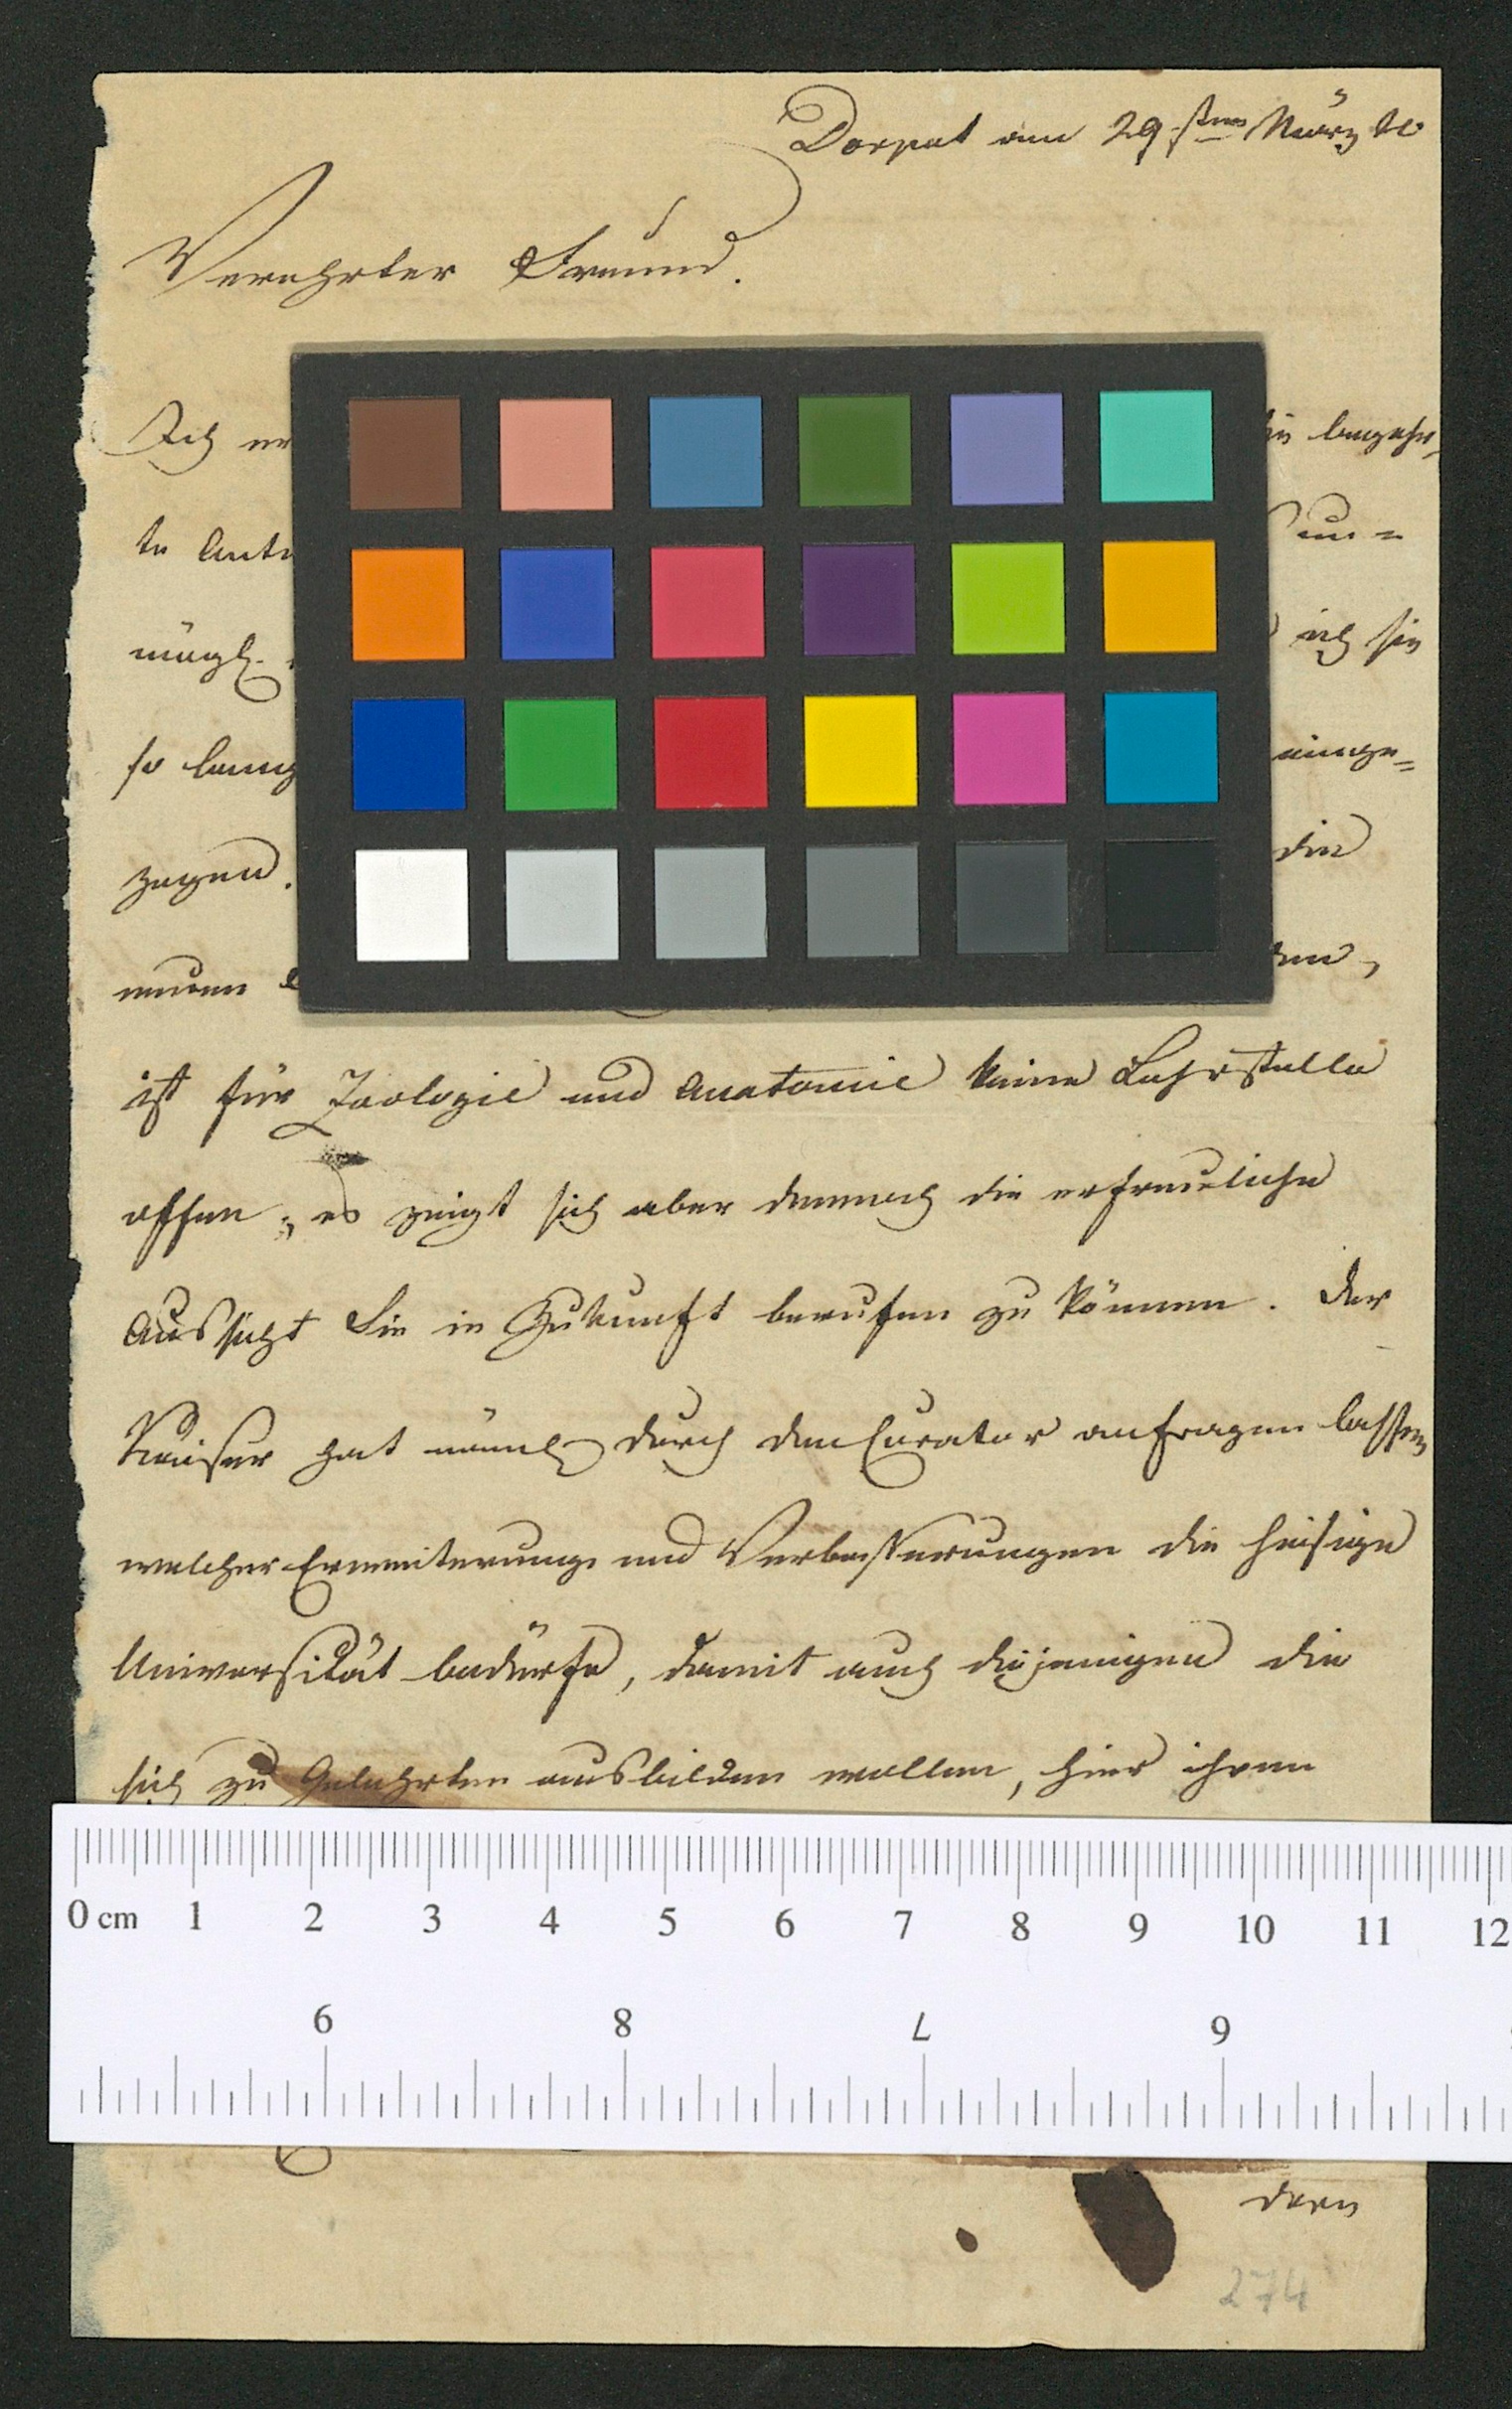 Dorpat am 29sten März 20
Verehrter Freund.
Ich er
te Antw
un=
mögl.
ich sie
so lang
einge=
zogen.
die
neuen
ist für Zoologie und Anatomie keine Lehrstelle
offen; es zeigt sich aber dennoch die erfreuliche
Aussicht Sie in Zukunft berufen zu können. Der
Kaiser hat nämlich durch den Curator anfragen lassen
welcher Erweiterung und Verbesserungen die hiesige
Universität bedürfe, damit auch diejenigen die
sich zu Gelehrten ausbilden wollen, hier ihren
0 cm 1 2 3 4 5 6 7 8 9 10 11 12
9 8 7 6
274